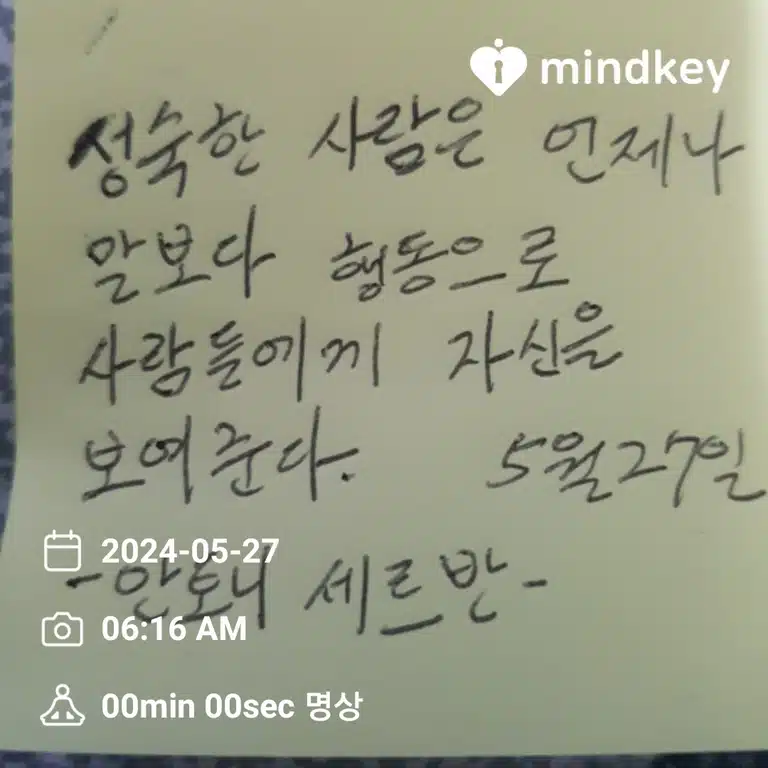 mindkey
성숙한 사람은 언제나
말보다 행동으로
사람들에게 자신을
보여준다. 5월27일
2024-05-27
-안토니 세르반-
06:16 AM
00min 00sec 명상